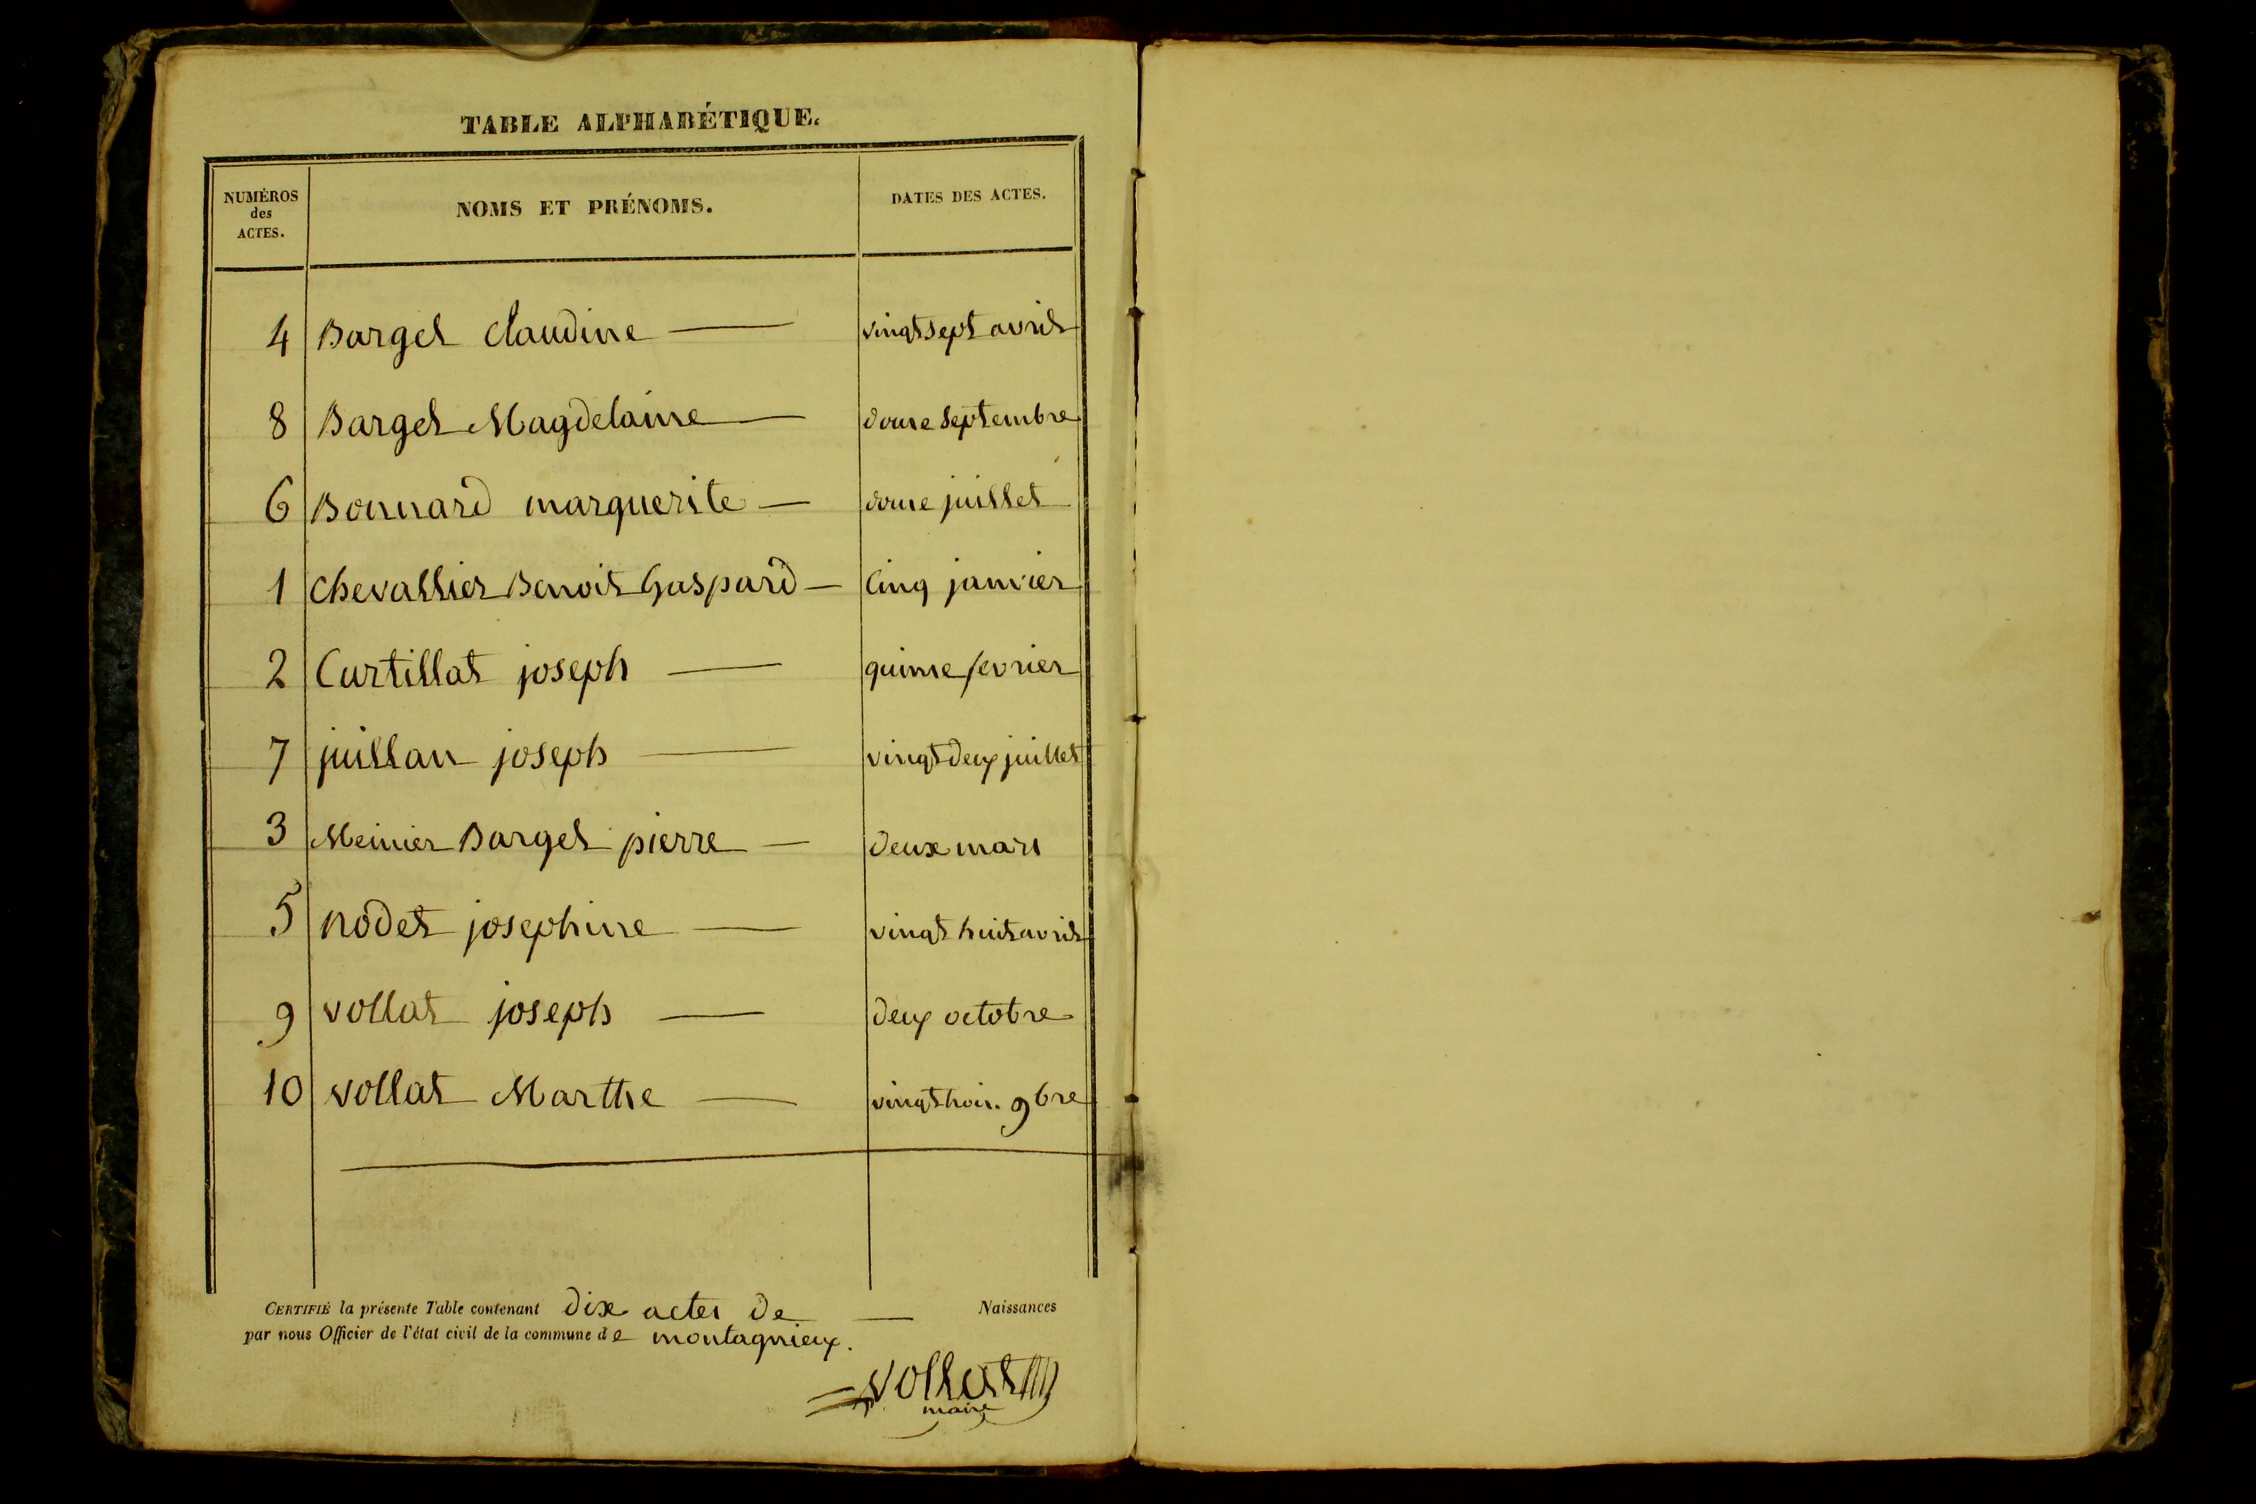 TABLE ALPHABÉTIQUE.
NUMÉROS des ACTES. NOMS ET PRÉNOMS. DATES DES ACTES.
4 Barget Claudine — vingt sept avril
8 Barget Magdelaine — douze septembre
6 Bonnard marguerite — douze juillet
1 Chevallier Benoit Gaspard — Cinq janvier
2 Curtillat joseph — quinze fevrier
7 juillan joseph — vingt deux juillet
3 Meinier Barget pierre — Deux mars
5 nodet josephine — vingt huit avril
9 vollat joseph — Deux octobre
10 vollat Marthe — vingt trois 9bre
CERTIFIÉ la présente Table contenant dix actes de — Naissances
par nous Officier de l'état civil de la commune de montagnieux.
vollat
maire